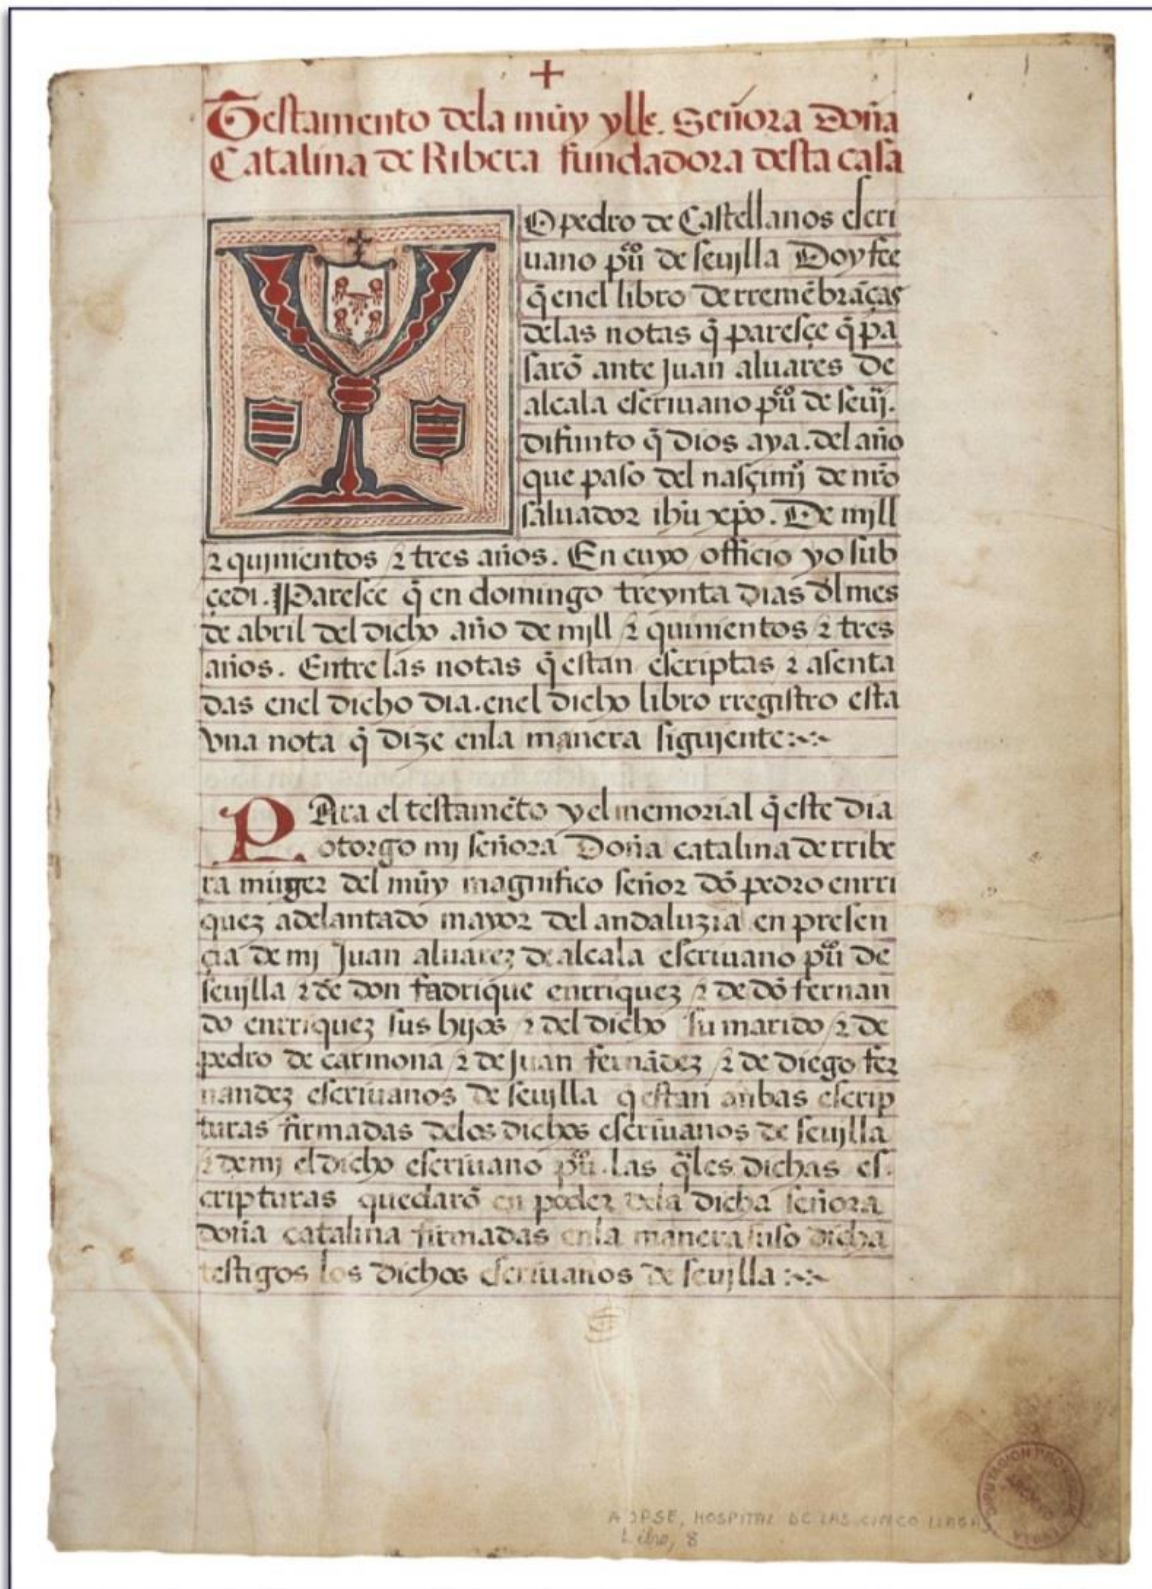 +
Testamento dela muy ylle. Señora Doña
Catalina de Ribera fundadora desta casa
YO pedro de Castellanos escri
uano puº de seuilla Doy fee
q̃ enel libro de rremẽbrãças
delas notas q̃ paresçe q̃ pa
sarõ ante juan aluares de
alcala escriuano puº de seuj̃.
difunto q̃ dios aya. del año
que paso del nasçimjº de nr̃o
saluador ihũ xp̃o. De mjll
⁊ qujnientos ⁊ tres años. En cuyo officio yo sub
çedi. Paresce q̃ en domingo treynta dias d̃l mes
de abril del dicho año de mjll ⁊ qujnientos ⁊ tres
años. Entre las notas q̃ estan escriptas ⁊ asenta
das enel dicho dia. enel dicho libro rregistro esta
vna nota q̃ dize enla manera siguiente:~:~
PAra el testamẽto y el memorial q̃ este dia
otorgo mj señora Doña catalina de rribe
ra muger del muy magnifico señor dõ pedro enrri
quez adelantado mayor del andaluzia en presen
çia de mj Juan aluarez de alcala escriuano puº de
seuilla ⁊ de don fadrique enrriquez ⁊ de dõ fernan
do enrriquez sus hijos ⁊ del dicho su marido ⁊ de
pedro de carmona ⁊ de juan fernãdez ⁊ de diego fer
nandez escriuanos de seuilla q estan anbas escrip
turas firmadas delos dichos escriuanos de seuilla
⁊ de mj el dicho escriuano puº. las q̃les dichas es
cripturas quedarõ en poder dela dicha señora
doña catalina firmadas enla manera suso dicha
testigos los dichos escriuanos de seuilla:~:~
ADPSE, HOSPITAL DE LAS CINCO LLAGAS
Libro, 8
DIPUTACION PROVINCIAL
ARCHIVO
SEVILLA